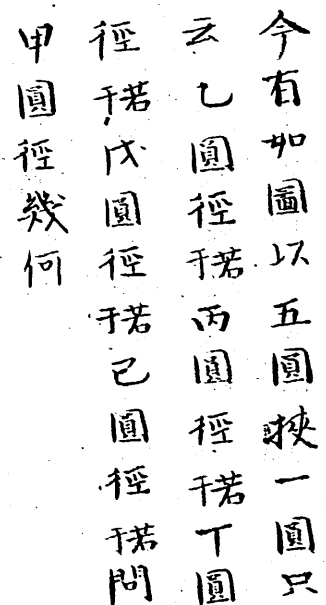 今有如圖以五圓挾一圓只
云乙圓徑若干丙圓徑若干丁圓
徑若干戊圓徑若干己圓徑若干問
甲圓徑幾何